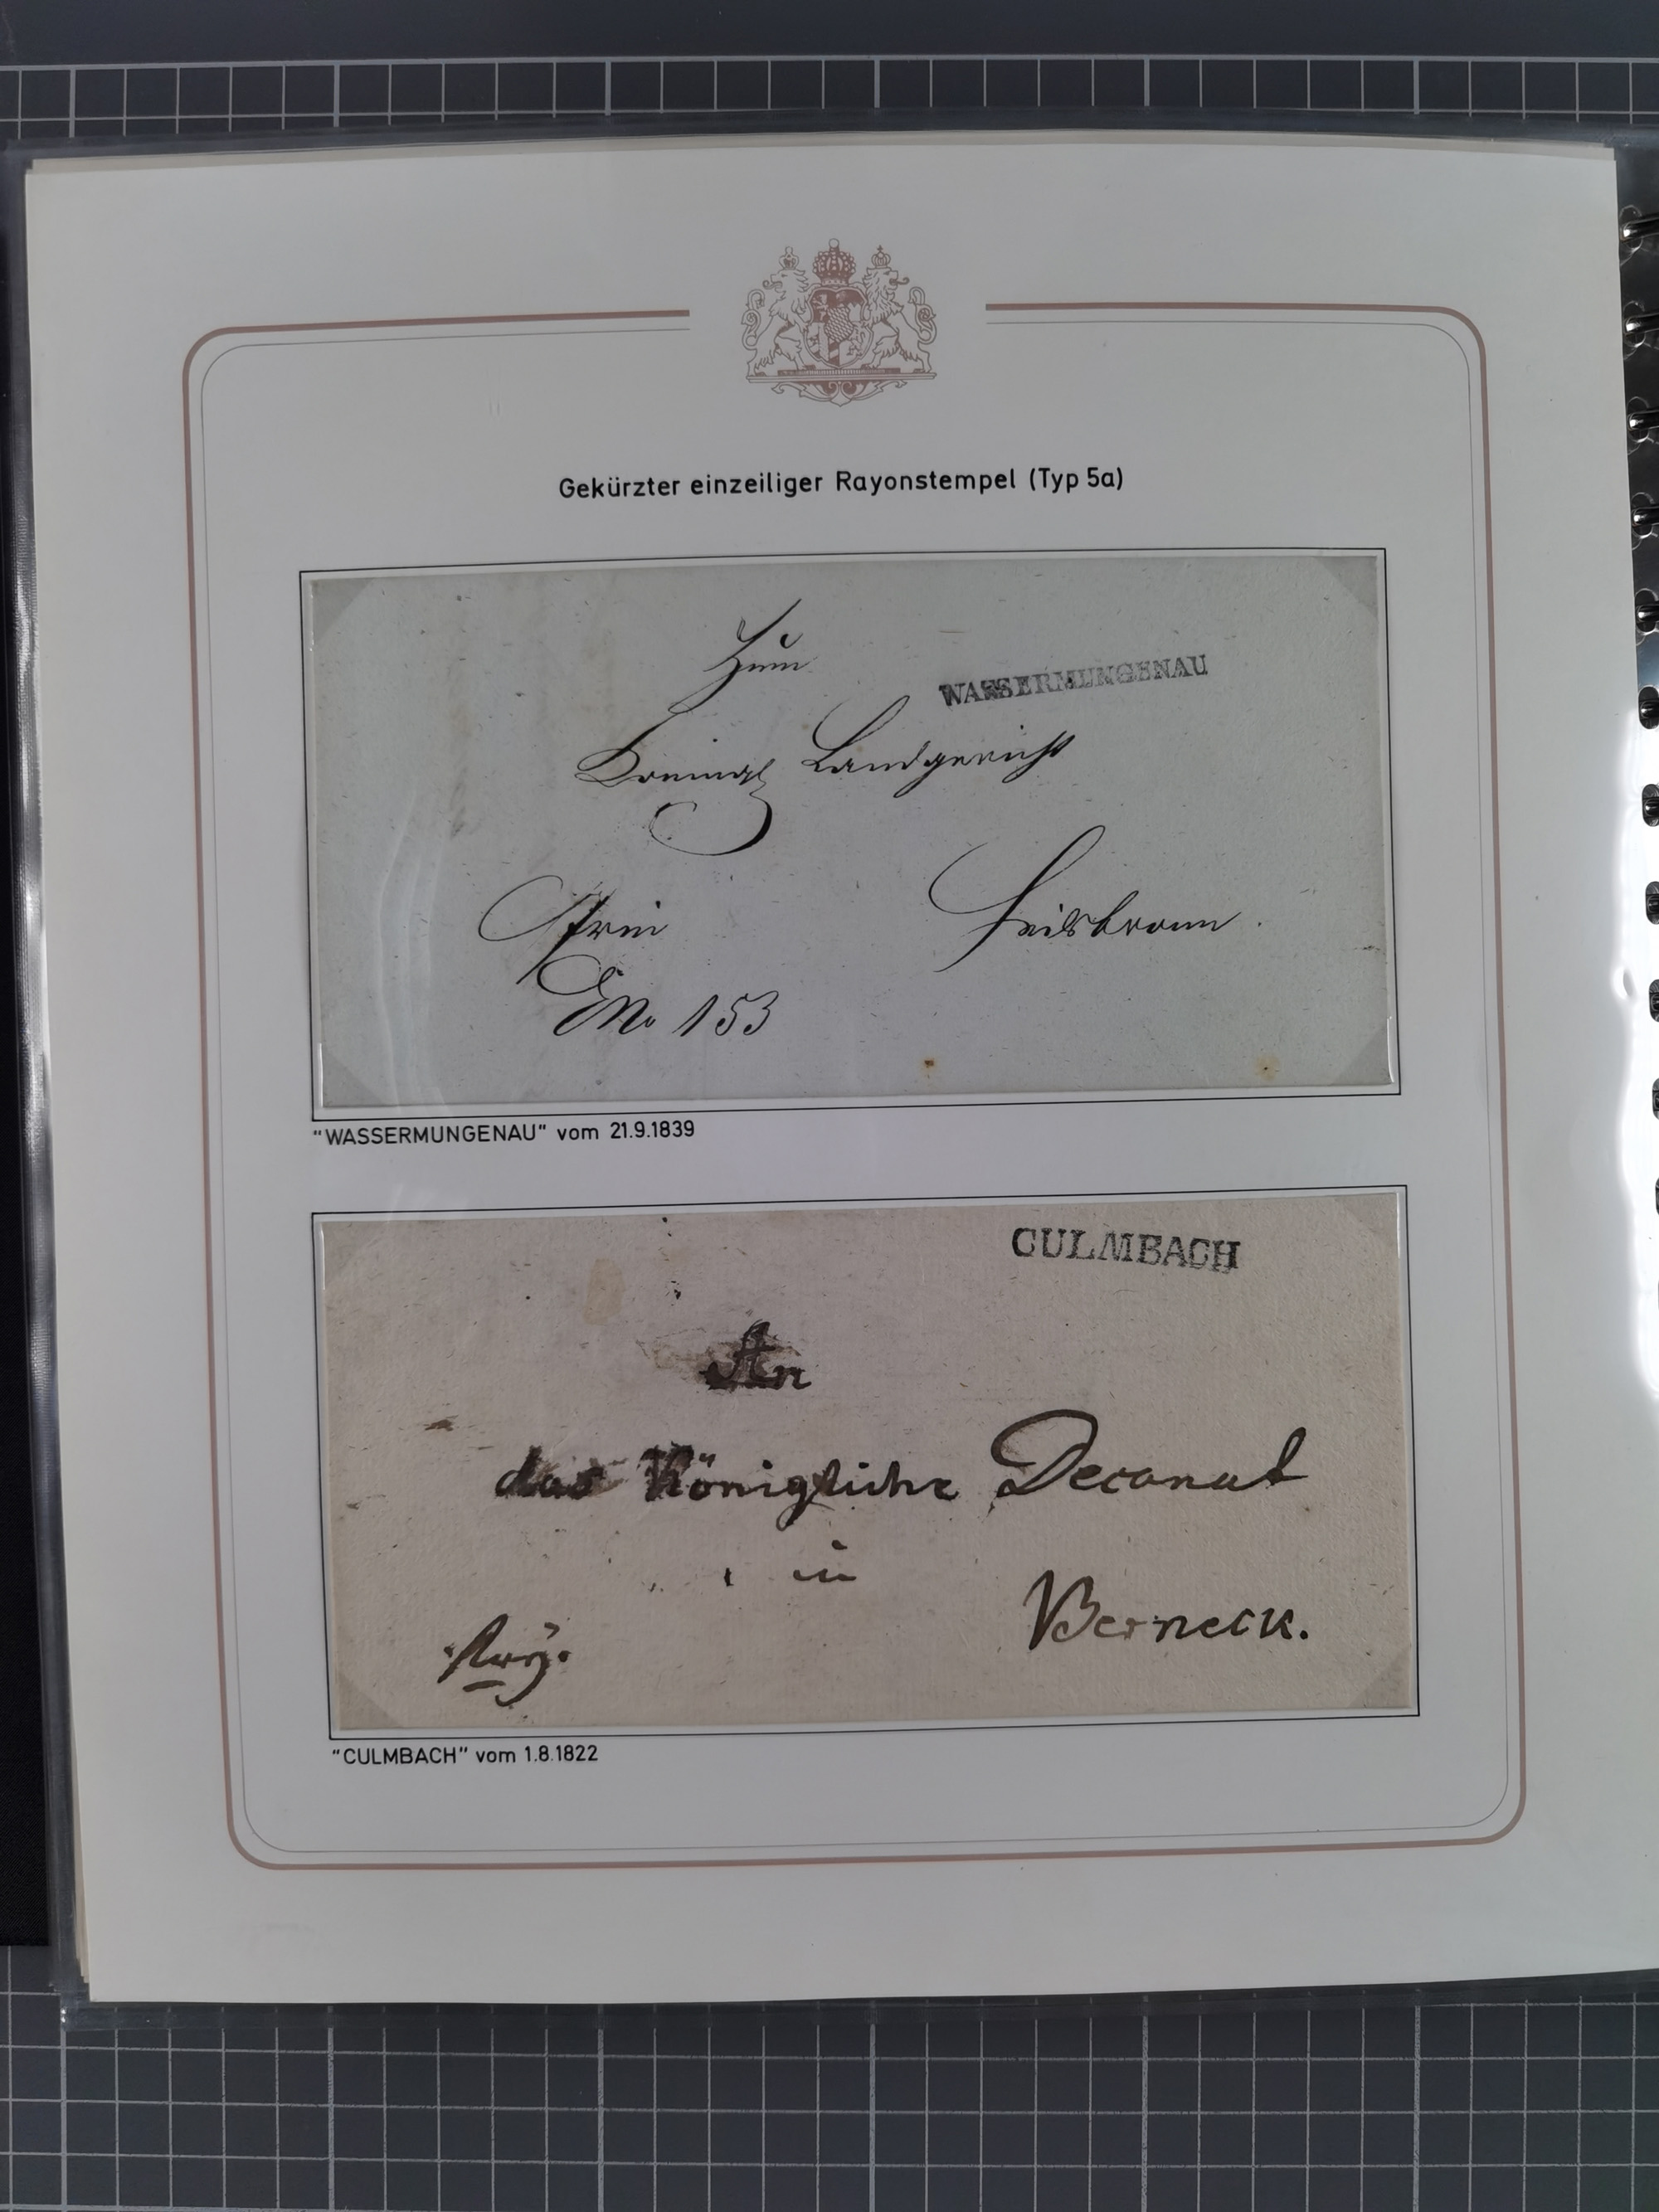 Gekürzter einzeiliger Rayonstempel (Typ 5a)
Zum
WASSERMUNGENAU
Königl Landgericht
Heilsbronn.
No 153
"WASSERMUNGENAU" vom 21.9.1839
CULMBACH
An
das Königliche Decanat
in
Berneck.
"CULMBACH" vom 1.8.1822